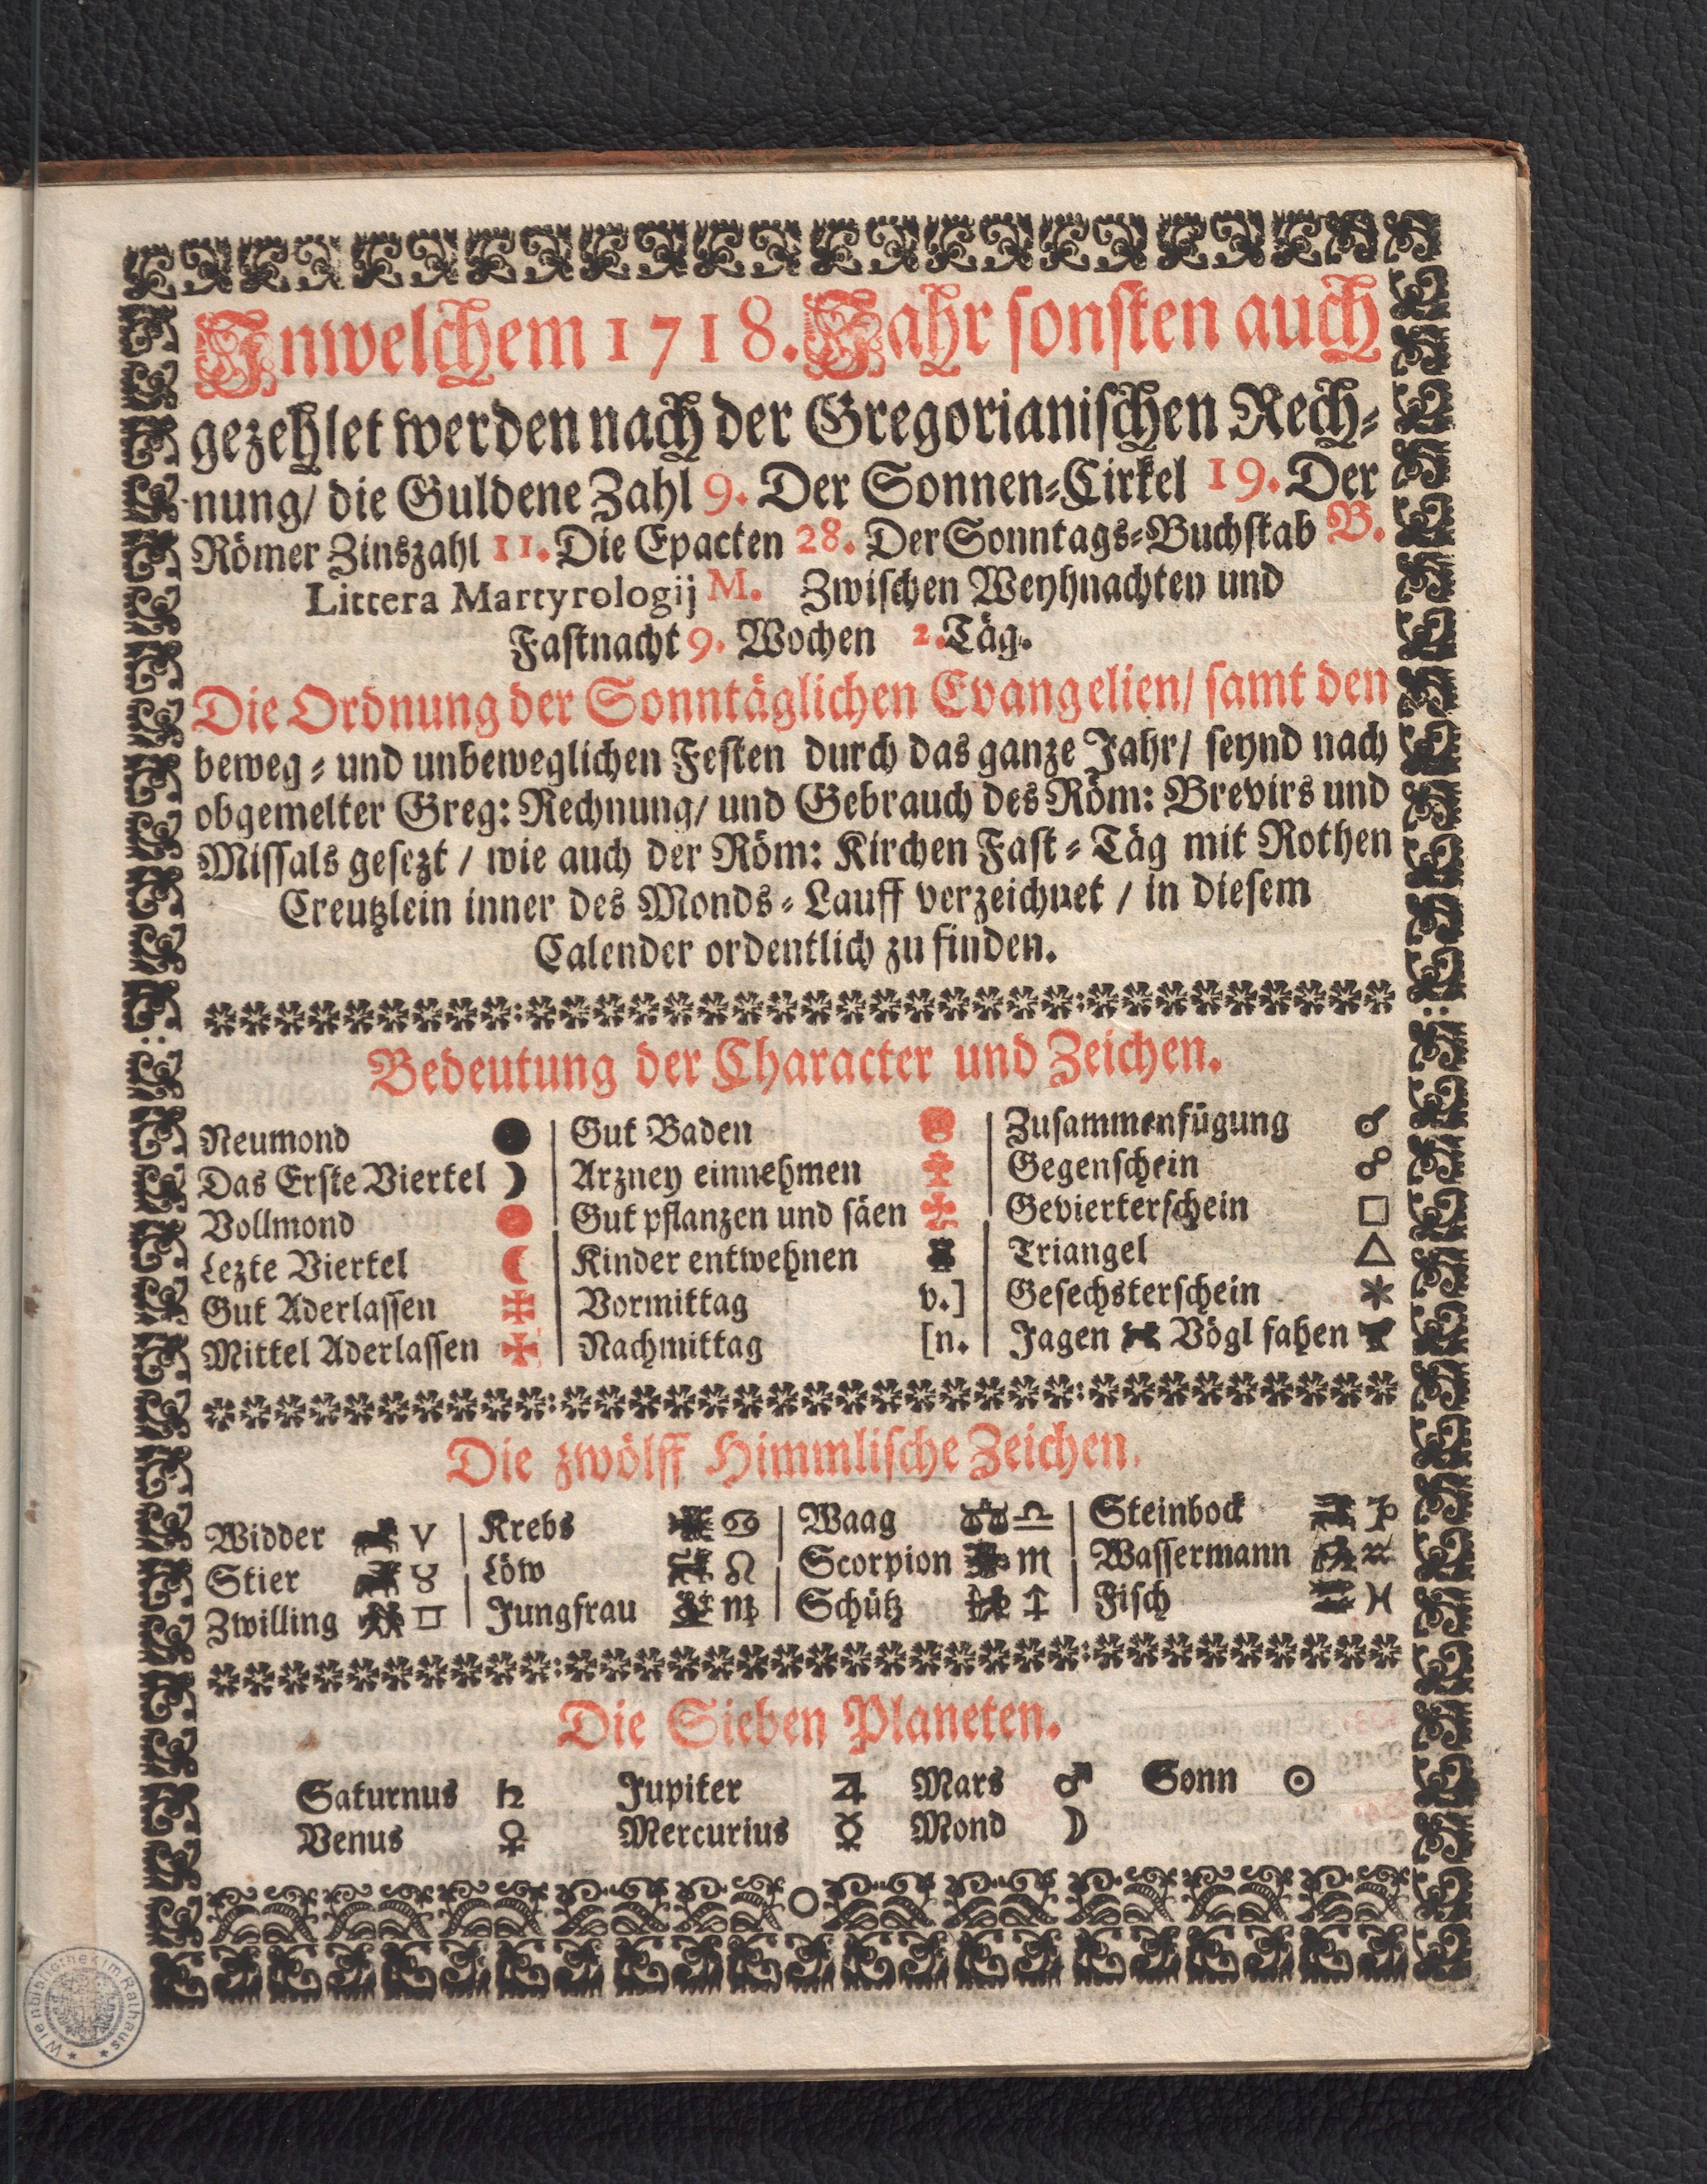 Inwelchem 1718. Jahr sonsten auch
gezehlet werden nach der Gregorianischen Rech-
nung/ die Guldene Zahl 9. Der Sonnen-Cirkel 19. Der
Römer Zinszahl 11. Die Epacten 28. Der Sonntags-Buchstab B.
Littera Martyrologij M. Zwischen Weyhnachten und
Fastnacht 9. Wochen 2. Täg.
Die Ordnung der Sonntäglichen Evangelien/ samt den
beweg- und unbeweglichen Festen durch das ganze Jahr/ seynd nach
obgemelter Greg: Rechnung/ und Gebrauch des Röm: Brevirs und
Missals gesezt / wie auch der Röm: Kirchen Fast-Täg mit Rothen
Creutzlein inner des Monds-Lauff verzeichnet / in diesem
Calender ordentlich zu finden.
Bedeutung der Character und Zeichen.
Neumond ●
Das Erste Viertel ☽
Vollmond
Lezte Viertel ☾
Gut Aderlassen
Mittel Aderlassen
Gut Baden
Arzney einnehmen
Gut pflanzen und säen
Kinder entwehnen
Vormittag v.]
Nachmittag [n.
Zusammenfügung ☌
Gegenschein ☍
Gevierterschein □
Triangel △
Gesechsterschein *
Jagen Vögl fahen
Die zwölff Himmlische Zeichen.
Widder ♈
Stier ♉
Zwilling ♊
Krebs ♋
Löw ♌
Jungfrau ♍
Waag ♎
Scorpion ♏
Schütz ♐
Steinbock ♑
Wassermann ♒
Fisch ♓
Die Sieben Planeten.
Saturnus ♄ Jupiter ♃ Mars ♂ Sonn ☉
Venus ♀ Mercurius ☿ Mond ☽
Wienbibliothek im Rathaus